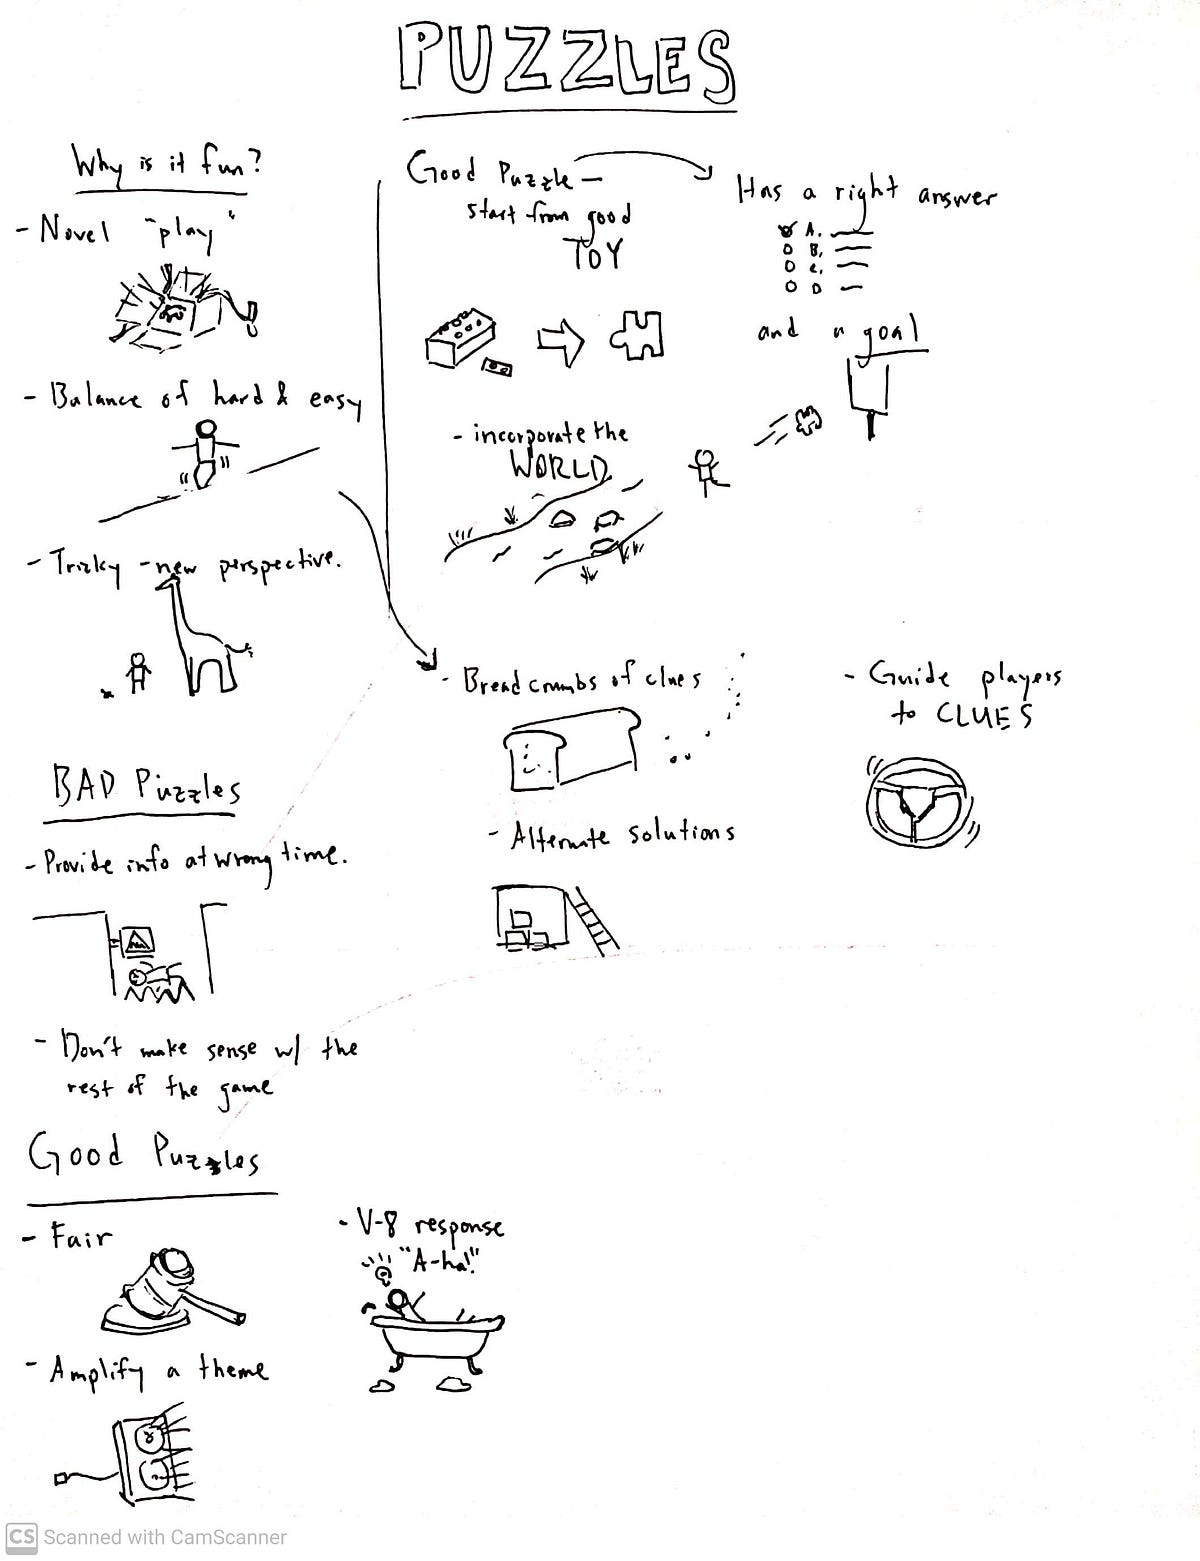 PUZZLES
Why is it fun?
- Novel "play"
- Balance of hard & easy
- Tricky - new perspective.
BAD Puzzles
- Provide info at wrong time.
- Don't make sense w/ the
rest of the game
Good Puzzles
- Fair
- Amplify a theme
- V-8 response
"A-ha!"
Good Puzzle —
start from good
TOY
- incorporate the
WORLD
Has a right answer
A.
B.
C.
D
and a goal
- Bread crumbs of clues
- Alternate solutions
- Guide players
to CLUES
CS Scanned with CamScanner